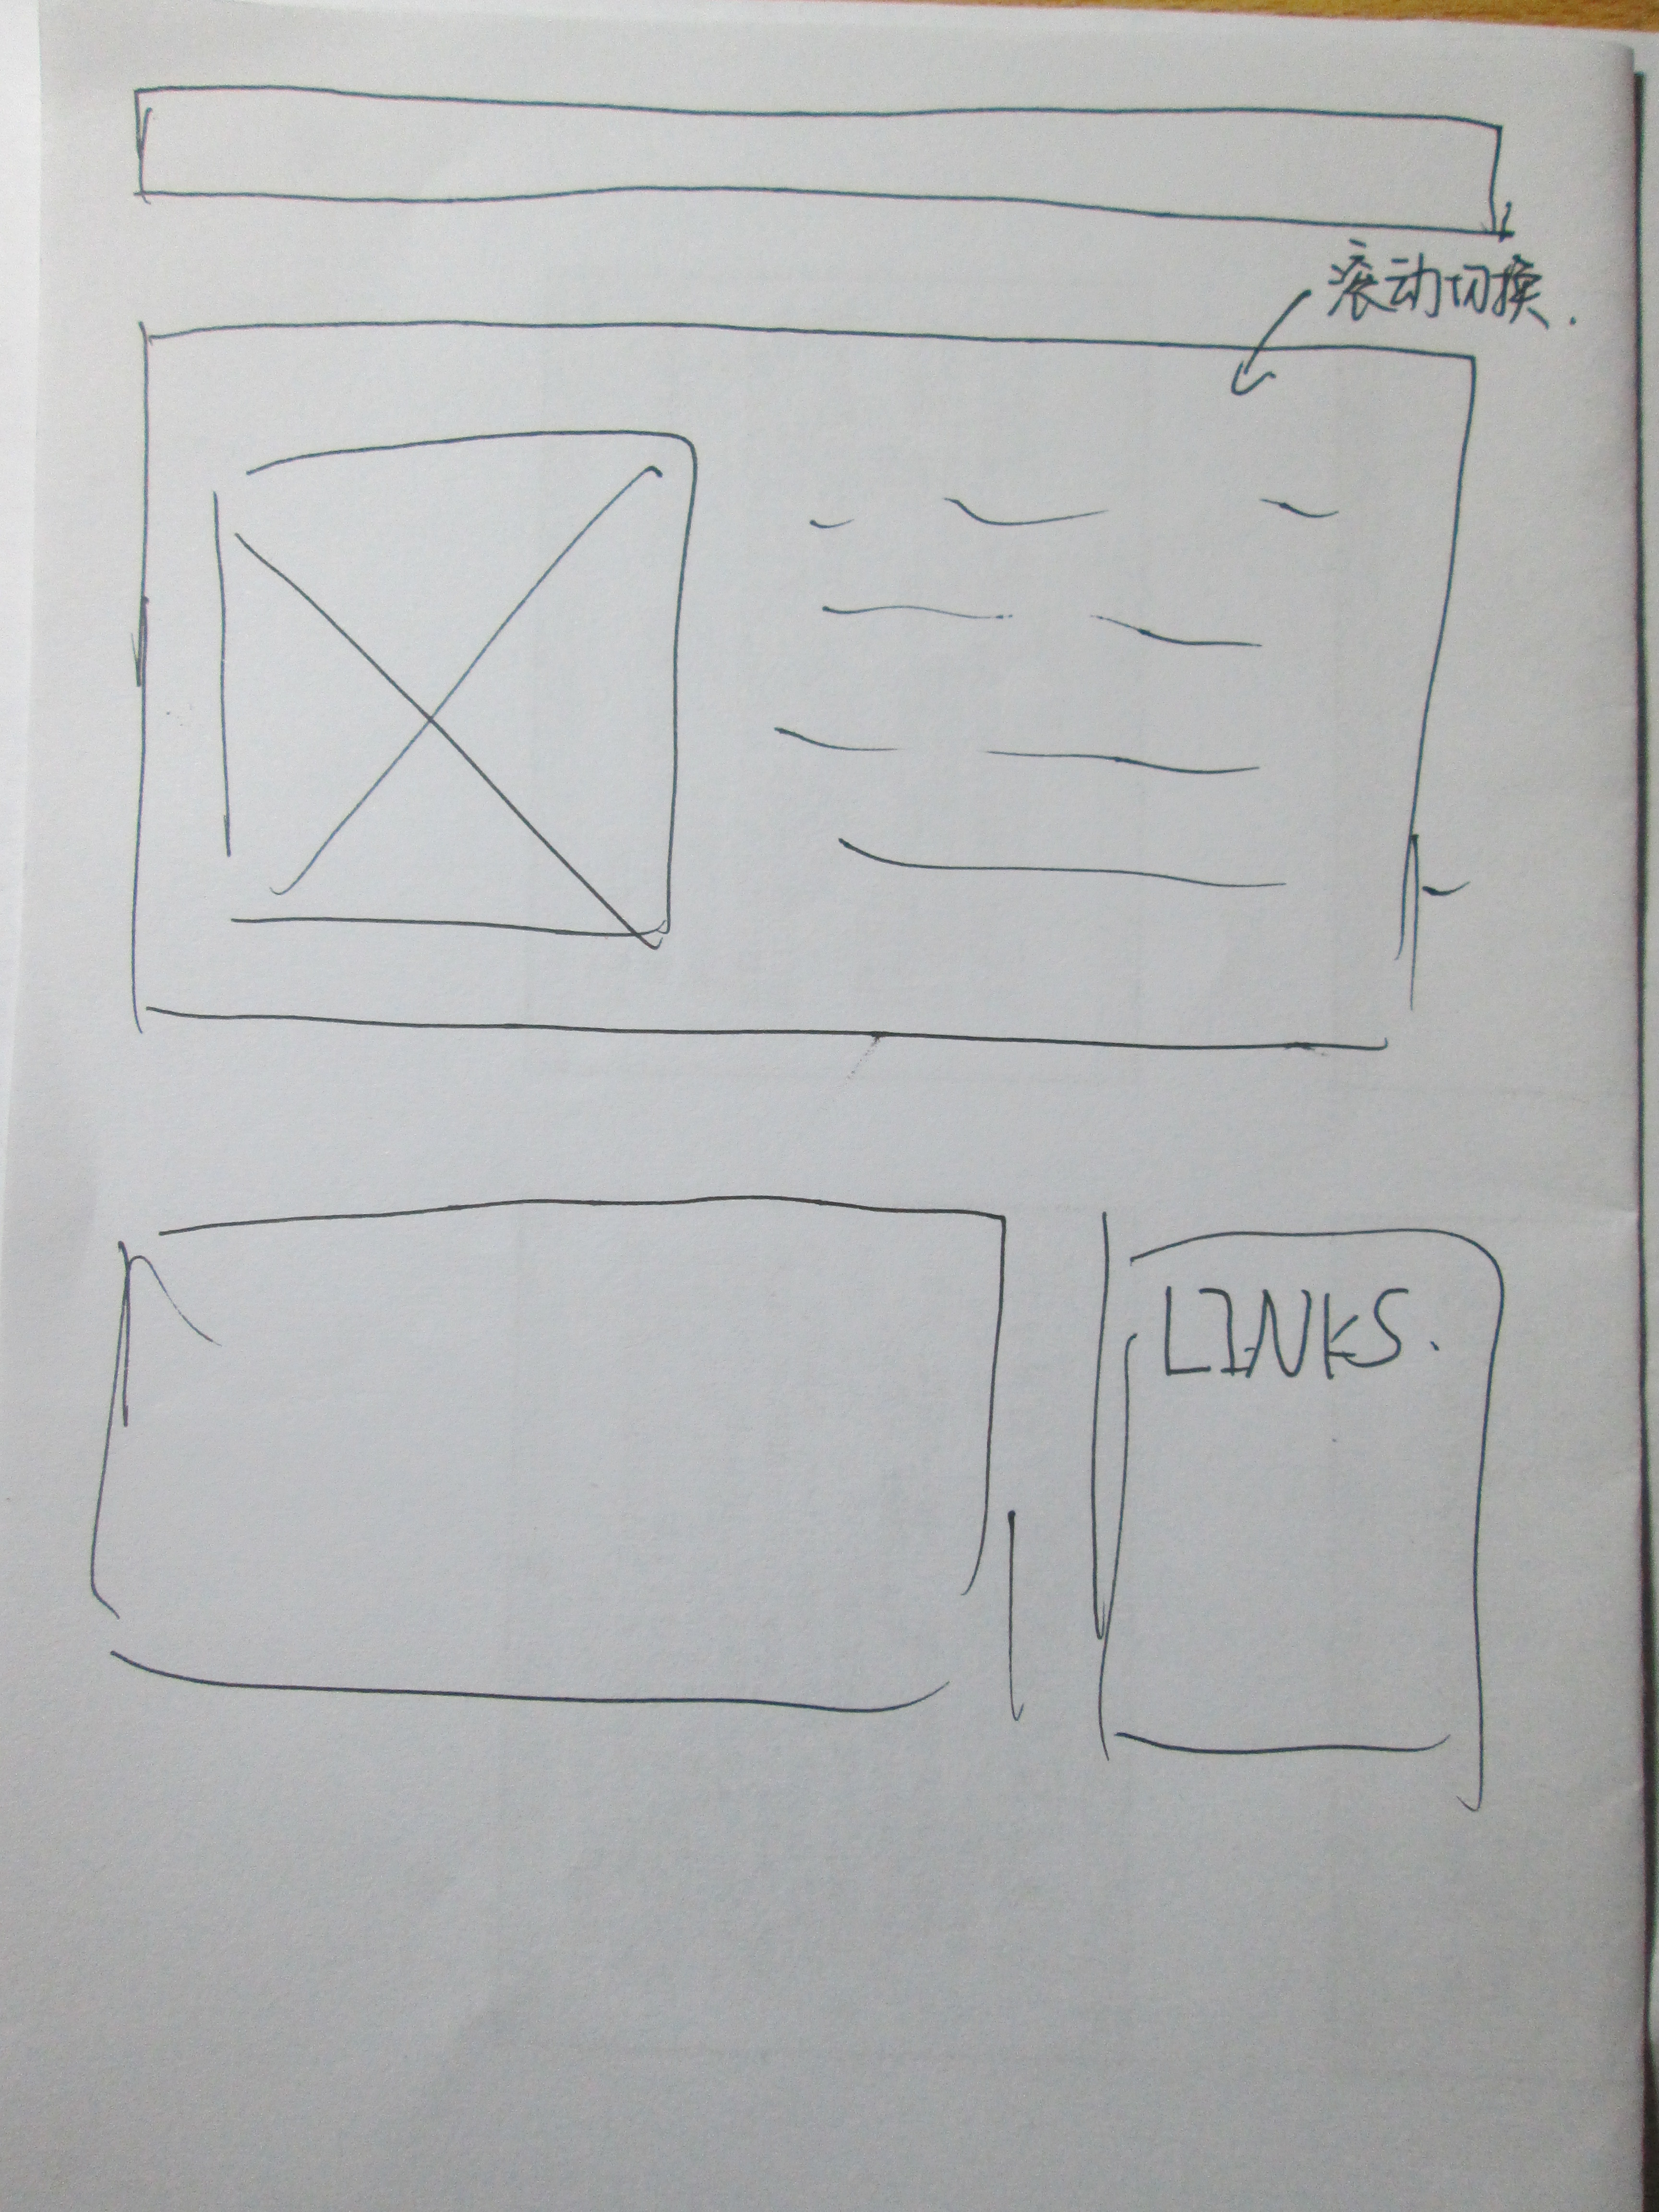 滚动切换.
LINKS.